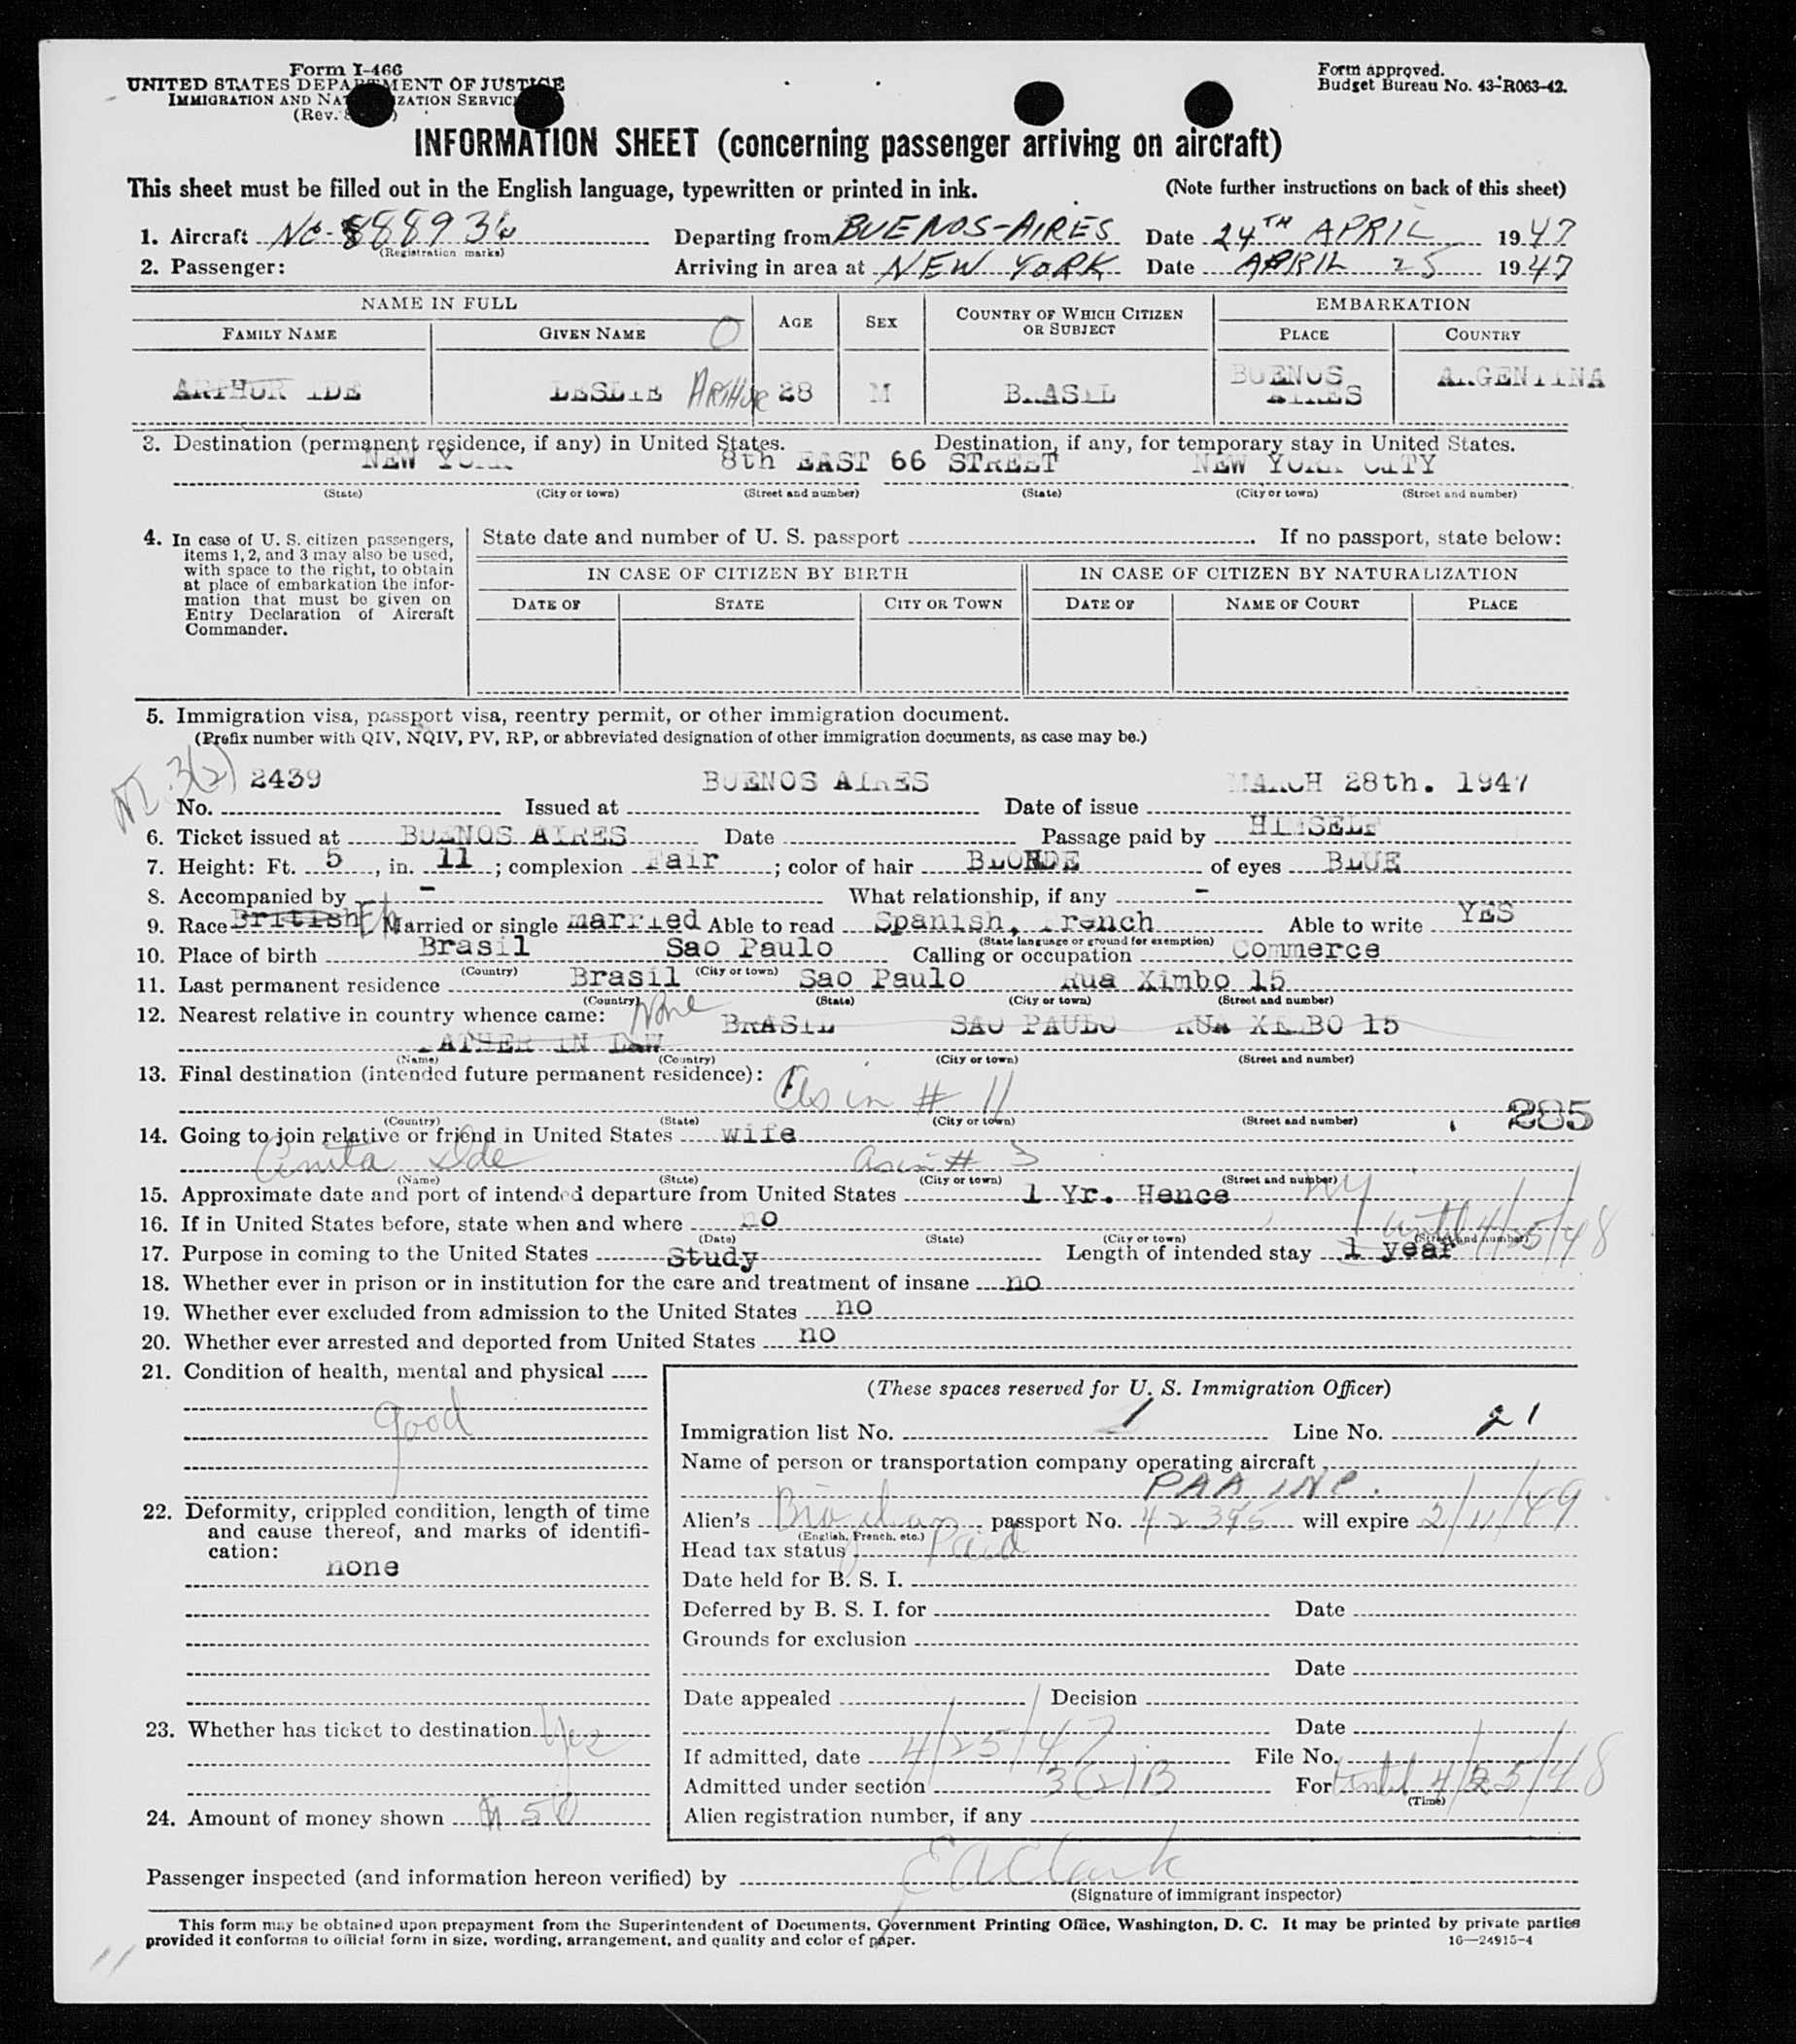 Form I-466
UNITED STATES DEPARTMENT OF JUSTICE
IMMIGRATION AND NATURALIZATION SERVICE
(Rev.
Form approved.
Budget Bureau No. 43-R063-42.
INFORMATION SHEET (concerning passenger arriving on aircraft)
This sheet must be filled out in the English language, typewritten or printed in ink. (Note further instructions on back of this sheet)
1. Aircraft NC-88893 Departing from BUENOS-AIRES Date 24TH APRIL 1947
(Registration marks)
2. Passenger: Arriving in area at NEW YORK Date APRIL 25 1947
NAME IN FULL AGE SEX COUNTRY OF WHICH CITIZEN OR SUBJECT EMBARKATION
FAMILY NAME GIVEN NAME PLACE COUNTRY
ARTHUR IDE LESLIE ARTHUR 28 M BRASIL BUENOS AIRES ARGENTINA
3. Destination (permanent residence, if any) in United States. Destination, if any, for temporary stay in United States.
NEW YORK 8th EAST 66 STREET NEW YORK CITY
(State) (City or town) (Street and number) (State) (City or town) (Street and number)
4. In case of U. S. citizen passengers,
items 1, 2, and 3 may also be used,
with space to the right, to obtain
at place of embarkation the infor-
mation that must be given on
Entry Declaration of Aircraft
Commander.
State date and number of U. S. passport . If no passport, state below:
IN CASE OF CITIZEN BY BIRTH IN CASE OF CITIZEN BY NATURALIZATION
DATE OF STATE CITY OR TOWN DATE OF NAME OF COURT PLACE
5. Immigration visa, passport visa, reentry permit, or other immigration document.
(Prefix number with QIV, NQIV, PV, RP, or abbreviated designation of other immigration documents, as case may be.)
3(2) 2439 BUENOS AIRES MARCH 28th. 1947
No. Issued at Date of issue
6. Ticket issued at BUENOS AIRES Date Passage paid by HIMSELF
7. Height: Ft. 5, in. 11; complexion Fair; color of hair BLONDE of eyes BLUE
8. Accompanied by - What relationship, if any -
9. Race British Married or single married Able to read Spanish, French Able to write YES
(State language or ground for exemption)
10. Place of birth Brasil Sao Paulo Calling or occupation Commerce
(Country) (City or town)
11. Last permanent residence Brasil Sao Paulo Rua Ximbo 15
(Country) (State) (City or town) (Street and number)
12. Nearest relative in country whence came: None BRASIL SAO PAULO RUA XIMBO 15
FATHER IN LAW
(Name) (Country) (City or town) (Street and number)
13. Final destination (intended future permanent residence):
As in # 11
(Country) (State) (City or town) (Street and number)
285
14. Going to join relative or friend in United States wife
Anita Ide as in # 3
(Name) (State) (City or town) (Street and number)
15. Approximate date and port of intended departure from United States 1 Yr. Hence NY
16. If in United States before, state when and where no
(Date) (State) (City or town) (Street and number)
until 4/25/48
17. Purpose in coming to the United States Study Length of intended stay 1 year
18. Whether ever in prison or in institution for the care and treatment of insane no
19. Whether ever excluded from admission to the United States no
20. Whether ever arrested and deported from United States no
21. Condition of health, mental and physical
good
22. Deformity, crippled condition, length of time
and cause thereof, and marks of identifi-
cation:
none
23. Whether has ticket to destination Yes
24. Amount of money shown $ 50
(These spaces reserved for U. S. Immigration Officer)
Immigration list No. 1 Line No. 21
Name of person or transportation company operating aircraft
PAA INC.
Alien's Brazilian passport No. 42395 will expire 2/11/49
(English, French, etc.)
Head tax status Paid
Date held for B. S. I.
Deferred by B. S. I. for Date
Grounds for exclusion
Date
Date appealed Decision
Date
If admitted, date 4/25/47 File No.
Admitted under section 3(2)B For Until 4/25/48
(Time)
Alien registration number, if any
Passenger inspected (and information hereon verified) by E A Clark
(Signature of immigrant inspector)
This form may be obtained upon prepayment from the Superintendent of Documents, Government Printing Office, Washington, D. C. It may be printed by private parties
provided it conforms to official form in size, wording, arrangement, and quality and color of paper.
16—24915-4